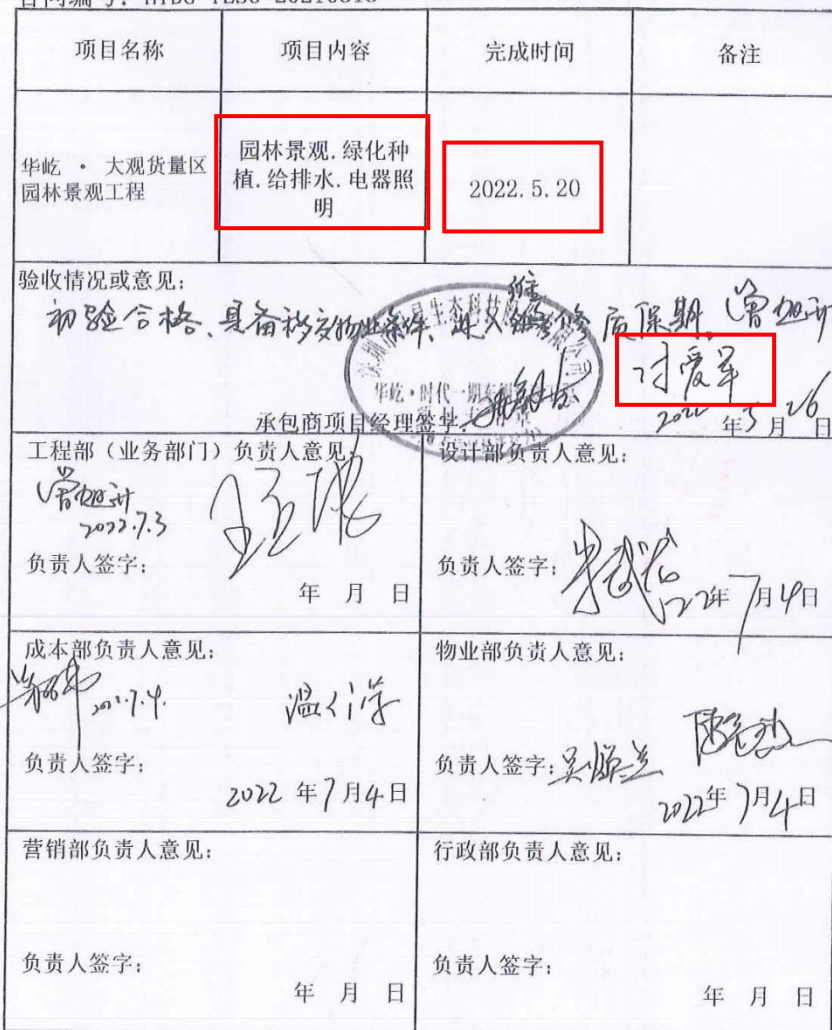 项目名称
项目内容
完成时间
备注
华屹 · 大观货量区
园林景观工程
园林景观.绿化种
植.给排水.电器照
明
2022.5.20
验收情况或意见:
维
初验合格、具备移交物业条件、进入 修 质保期
生态科技
华屹·时代一期
承包商项目经理签字
2022 年5月26日
工程部(业务部门)负责人意见:
2022.7.3
负责人签字:
年 月 日
设计部负责人意见:
负责人签字:
年7月4日
成本部负责人意见:
2022.7.4.
负责人签字:
2022 年7月4日
物业部负责人意见:
负责人签字:
2022年7月4日
营销部负责人意见:
负责人签字:
年 月 日
行政部负责人意见:
负责人签字:
年 月 日